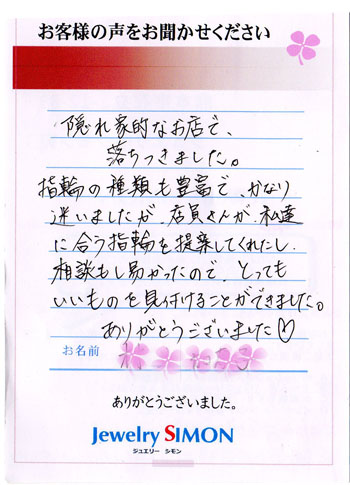 お客様の声をお聞かせください
隠れ家的なお店で、
落ちつきました。
指輪の種類も豊富で、かなり
迷いましたが、店員さんが、私達
に合う指輪を提案してくれたし、
相談もし易かったので、とっても
いいものを見付けることができました。
ありがとうございました♡
お名前
ありがとうございました。
Jewelry SIMON
ジュエリー シモン